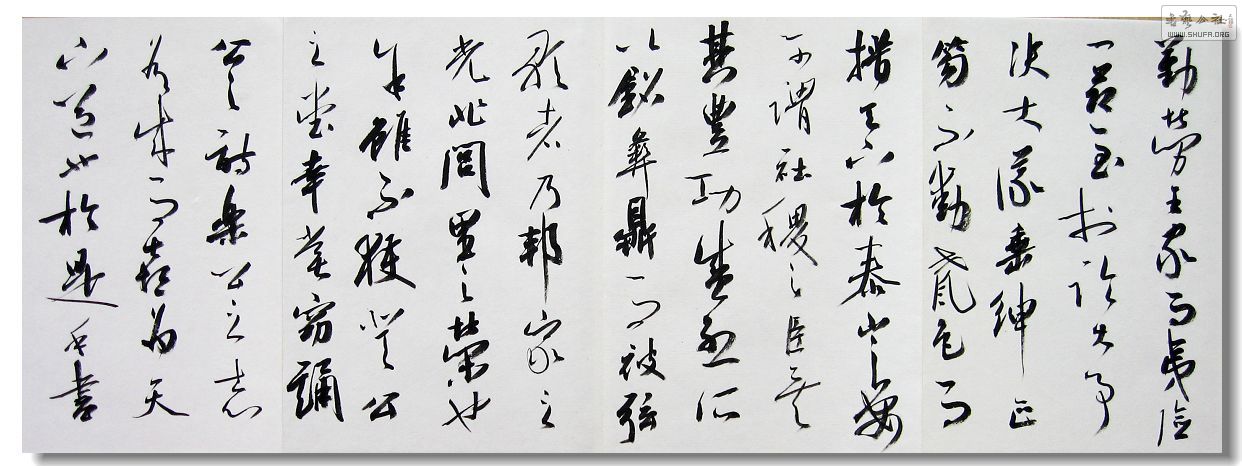 勤勞王家而夷險
一節至於臨大事
決大議垂紳正
笏不動聲色而
措天下於泰山之安
可謂社稷之臣矣
其豐功盛烈所
以銘彝鼎而被弦
歌者乃邦家之
光非閭里之榮也
余雖不獲登公
之堂幸嘗竊誦
公之詩樂公之志
有成而喜為天
下道也於是乎書
書藝公社
WWW.SHUFA.ORG